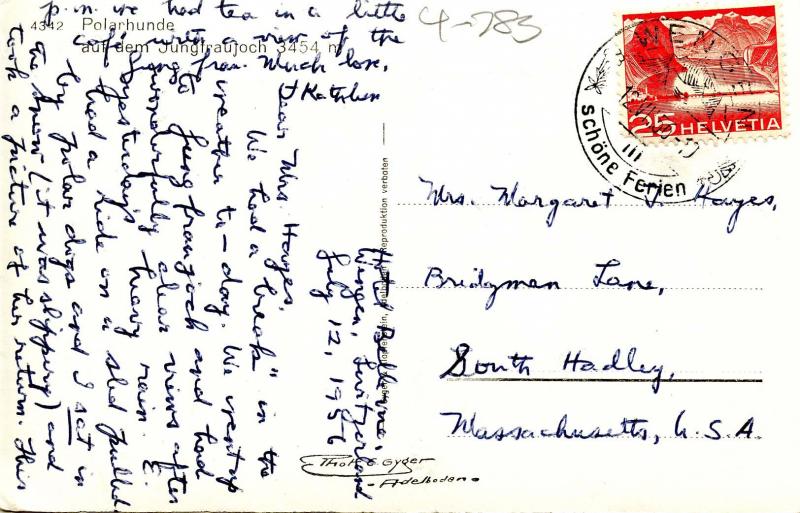 4342 Polarhunde
auf dem Jungfraujoch 3454 m
4-783
25 HELVETIA
WENGEN
schöne Ferien
Hotel Bellevue,
Wengen, Switzerland
July 12, 1956
Dear Mrs. Hayes,
We had a "break" in the
weather to-day. We went up
to Jungfraujoch and had
wonderfully clear views after
yesterday's heavy rain. E.
had a ride on a sled pulled
by polar dogs and I sat in
the snow (it was slippery) and
took a picture of her return. This
p.m. we had tea in a little
café with a view of the
Jungfrau. Much love,
Kathleen
Mrs. Margaret J. Hayes,
Bridgman Lane,
South Hadley,
Massachusetts, U.S.A.
reproduktion verboten
Gyger
Adelboden.